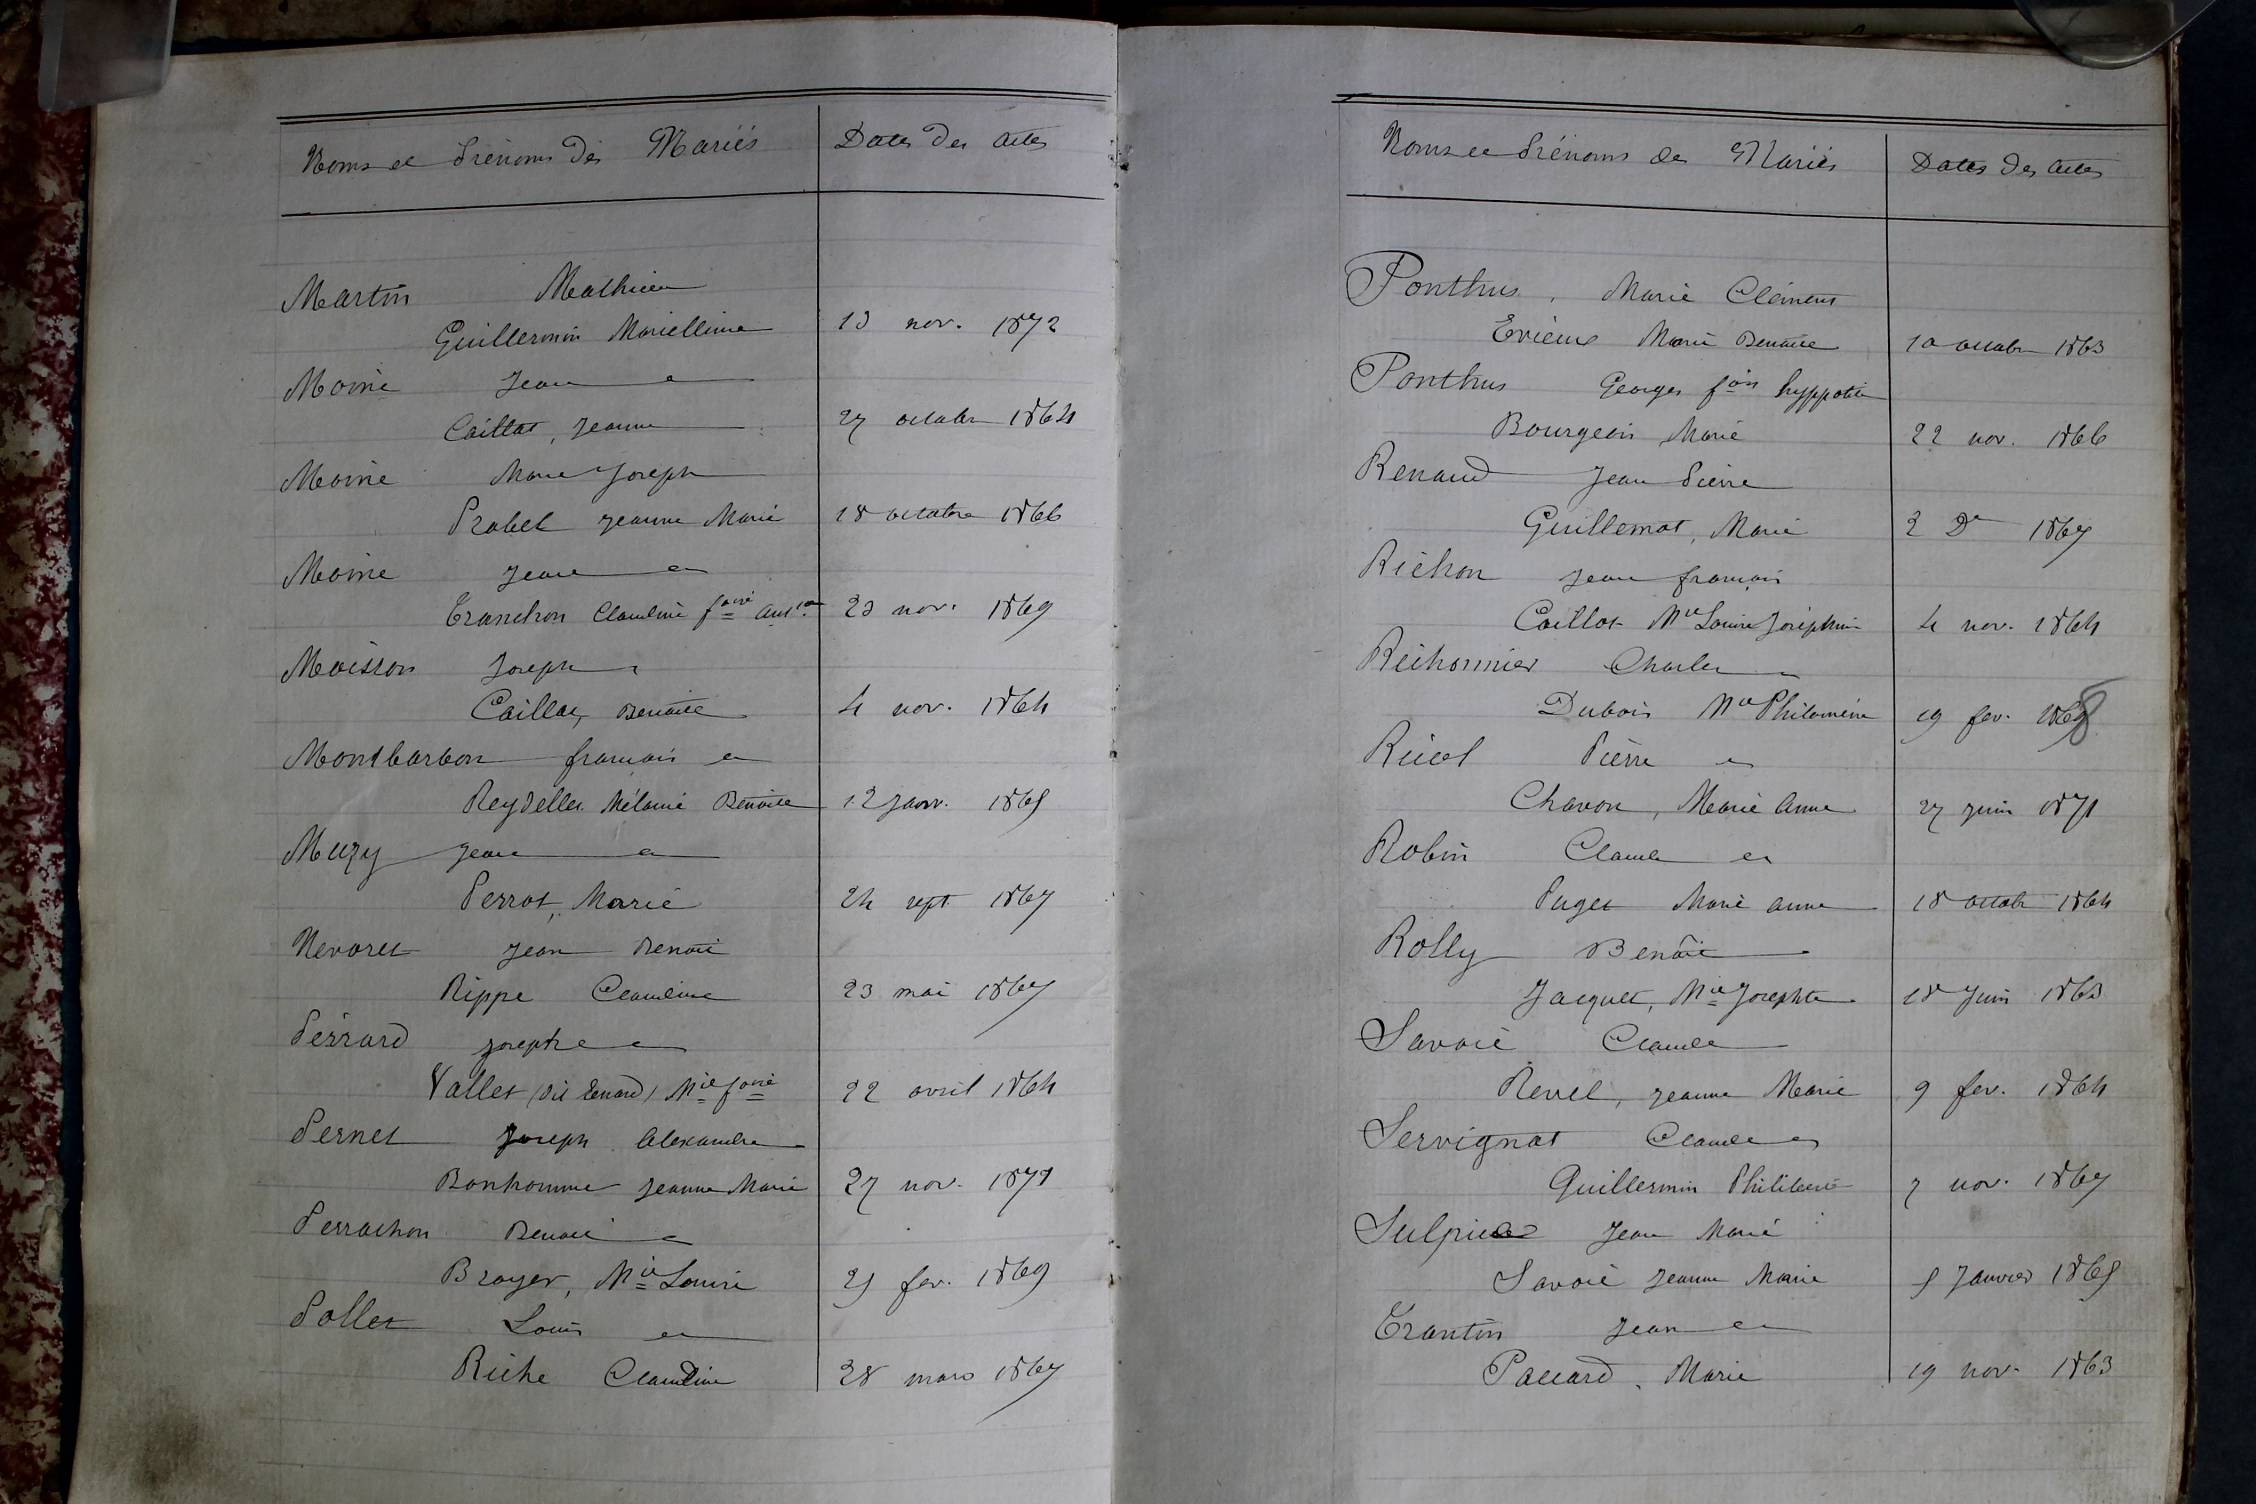 Noms et Prénoms des Mariés Dates des actes
Martin Mathieu
Guillermin Mariellime 13 nov. 1872
Moine Jean et
Caillat, Jeanne 27 octobre 1864
Moine Marie Joseph
Probel Jeanne Marie 18 octobre 1866
Moine Jean et
Tranchon Claudine fçoise Ant.ne 23 nov. 1869
Moisson Joseph et
Caillat, Benoite 4 nov. 1864
Montbarbon françois et
Reydellet Mélanie Benoite 12 Janv. 1865
Muzy Jean et
Perrot, Marie 24 sept 1867
Nevoret Jean Benoit
Rippe Claudine 23 mai 1867
Perrard Joseph et
Vallet (dit Renard) Mie fçoise 22 avril 1864
Pernet Joseph Alexandre
Bonhomme Jeanne Marie 27 nov. 1871
Perrachon Benoit et
Broyer, Mie Louise 25 fev. 1869
Pollet Louis et
Riche Claudine 28 mars 1867
Noms et Prénoms des Mariés Dates des actes
Ponthus, Marie Clément
Evieux Marie Benoite 10 octobre 1863
Ponthus Georges fçois hyppolite
Bourgeois Marie 22 nov. 1866
Renaud Jean Pierre
Guillemot, Marie 2 De 1867
Richon Jean françois
Caillot Mie Louise Joséphine 4 nov. 1864
Richonnier Charles
Dubois Mie Philomène 19 fev. 1868
Ricol Pierre et
Chavon, Marie Anne 27 juin 1871
Robin Claude et
Puget Marie Anne 18 octobr 1864
Rolly Benoît
Jacquet, Mie Josephte 18 Juin 1863
Savoie Claude
Revel, Jeanne Marie 9 fev. 1864
Servignat Claude et
Guillermin Philiberte 7 nov. 1867
Sulpice Jean Marie
Savoie Jeanne Marie 5 Janvier 1865
Trantin Jean et
Paccard, Marie 19 nov. 1863